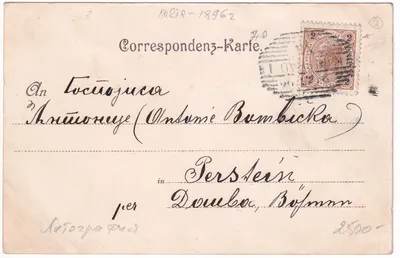 Polia - 1896 г
2.0
Correspondenz-Karte.
An Госпојица
Антоније (Antonie Bombicka)
in Perstein
per Dauba, Böhmen
Литография 2500-